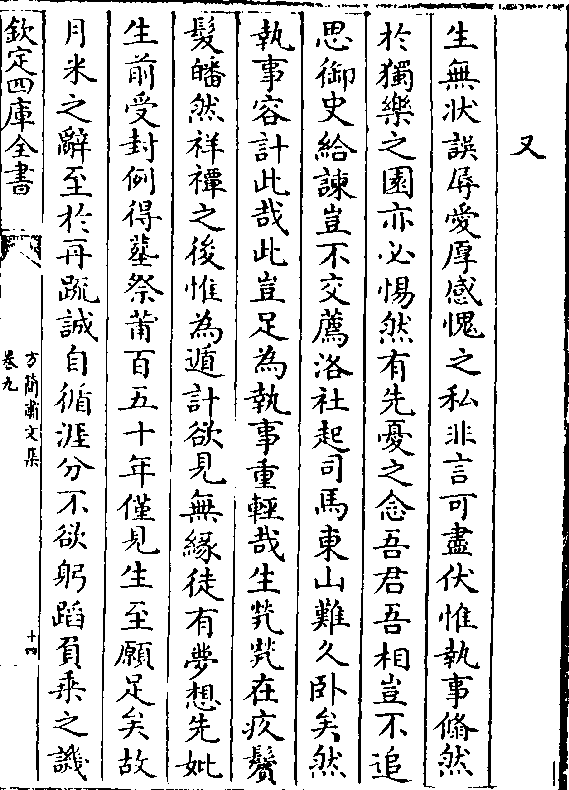 又
生無狀誤辱愛厚感愧之私非言可盡伏惟執事翛然
於獨樂之園亦必惕然有先憂之念吾君吾相豈不追
思御史給諫豈不交薦洛社起司馬東山難久卧矣然
執事容計此哉此豈足為執事重輕哉生煢煢在疚鬢
髮皤然祥禫之後惟為遁計欲見無緣徒有夢想先妣
生前受封例得塟祭莆百五十年僅見生至願足矣故
月米之辭至於再䟽誠自循涯分不欲躬蹈負乗之譏
欽定四庫全書
方簡肅文集
卷九
十四